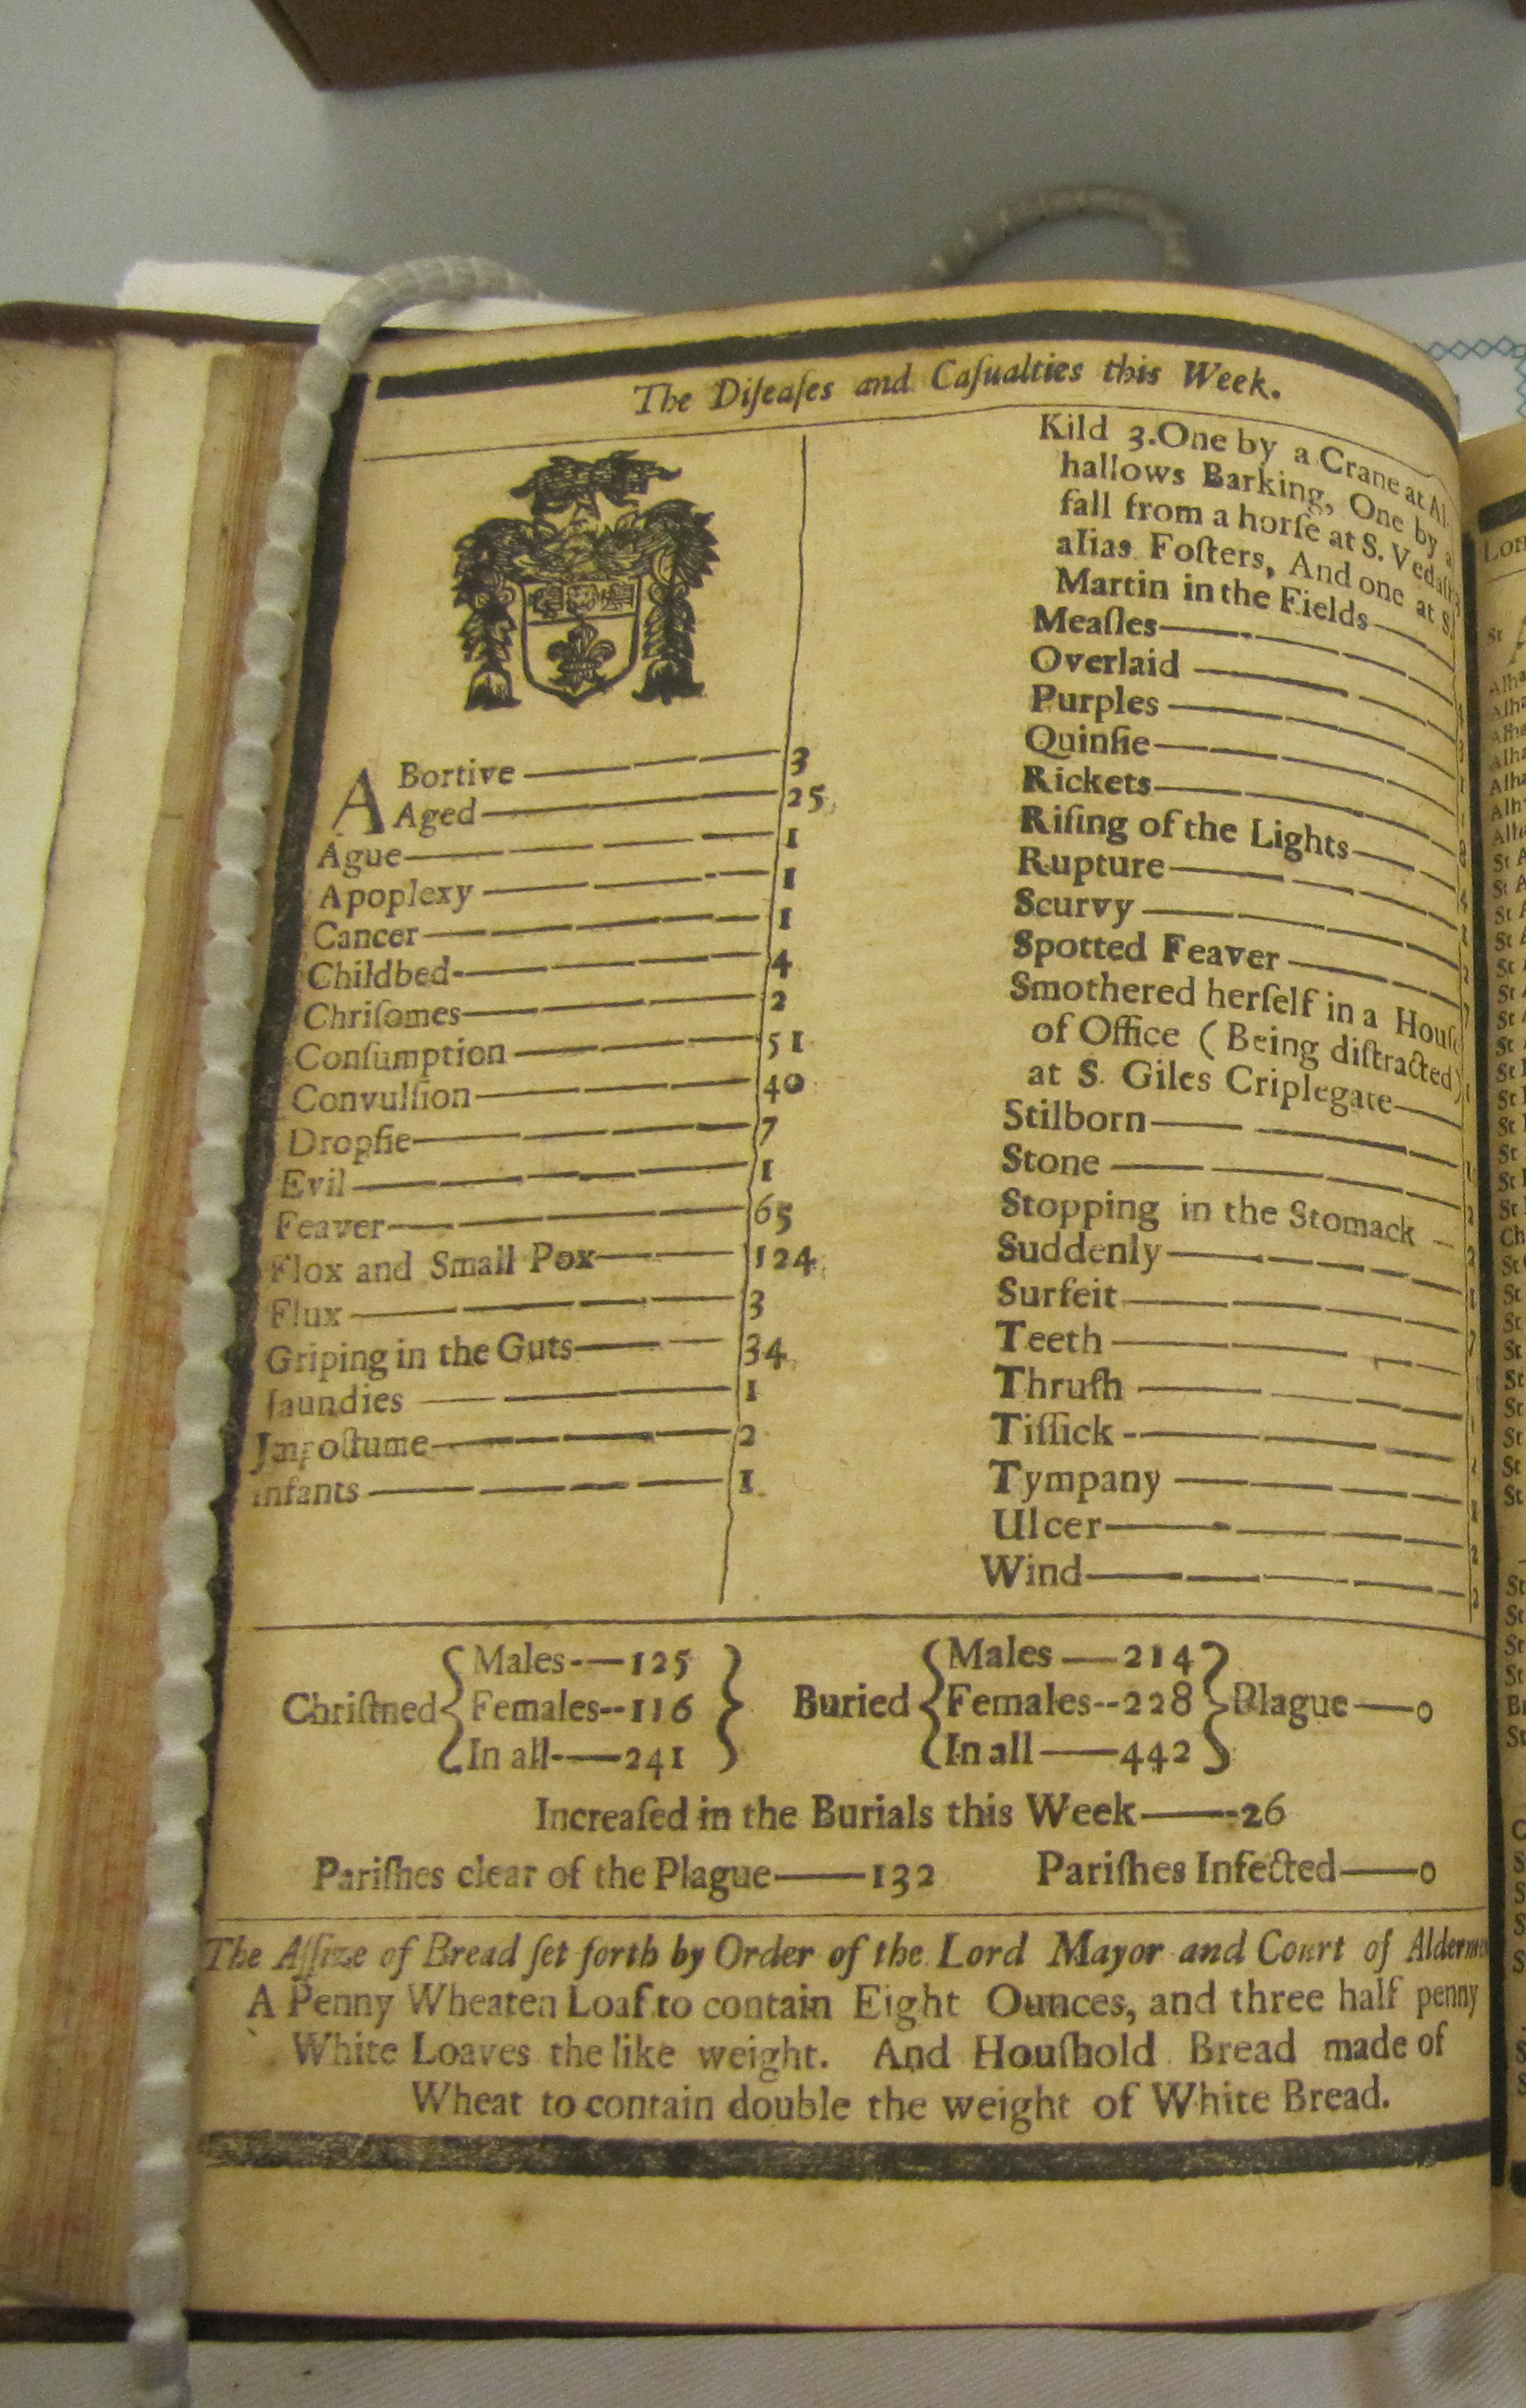 The Diſeaſes and Caſualties this Week.
ABortive 3
Aged 25
Ague 1
Apoplexy 1
Cancer 1
Childbed 4
Chriſomes 2
Conſumption 51
Convulſion 40
Dropſie 7
Evil 1
Feaver 65
Flox and Small Pox 124
Flux 3
Griping in the Guts 34
Jaundies 1
Impoſtume 2
Infants 1
Kild 3. One by a Crane at Al
hallows Barking, One by a
fall from a horſe at S. Vedaſt
alias Foſters, And one at S
Martin in the Fields
Meaſles
Overlaid
Purples
Quinſie
Rickets
Riſing of the Lights
Rupture
Scurvy
Spotted Feaver
Smothered herſelf in a Houſe
of Office (Being diſtracted)
at S. Giles Criplegate
Stilborn
Stone
Stopping in the Stomack
Suddenly
Surfeit
Teeth
Thruſh
Tiſſick
Tympany
Ulcer
Wind
Chriſtned
Males 125
Females 116
In all 241
Buried
Males 214
Females 228
In all 442
Plague 0
Increaſed in the Burials this Week 26
Pariſhes clear of the Plague 132 Pariſhes Infected 0
The Aſſize of Bread ſet forth by Order of the Lord Mayor and Court of Aldermen
A Penny Wheaten Loaf to contain Eight Ounces, and three half penny
White Loaves the like weight. And Houſhold Bread made of
Wheat to contain double the weight of White Bread.